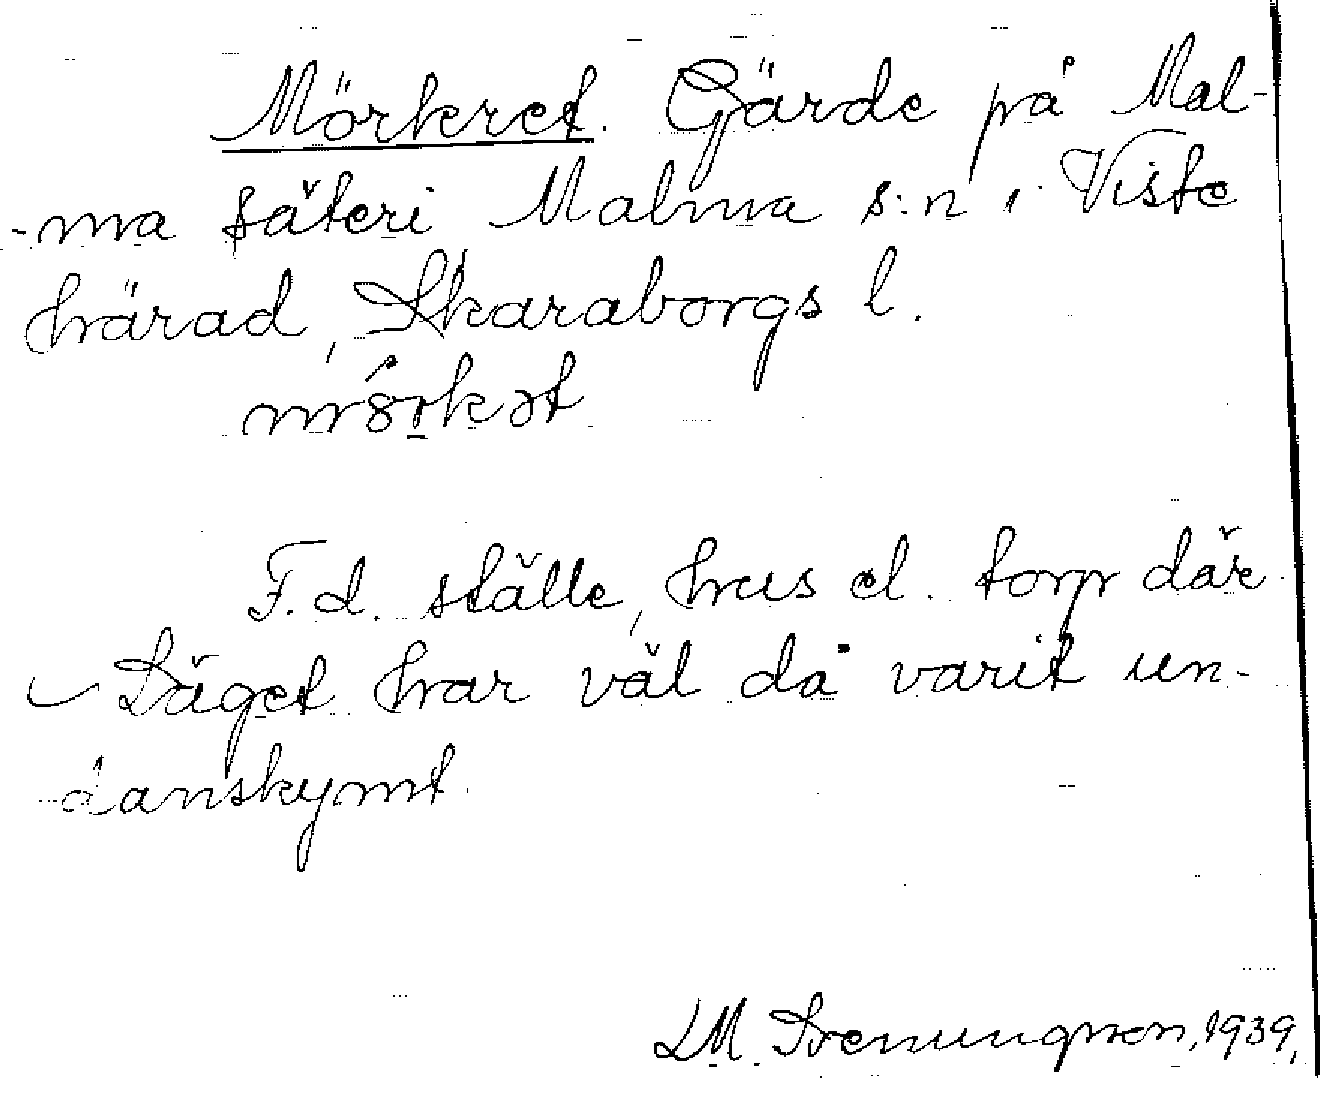 Mörkret. Gärde på Mal-
-ma säteri Malma s:n i Viste
härad, Skaraborgs l.
F.d. ställe, hus el. torp där
Läget har väl då varit un-
danskymt.
LM. Svenungsson, 1939,